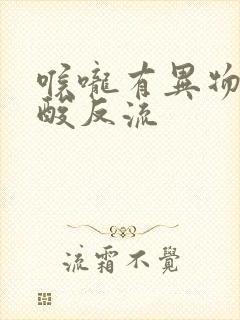 喉嚨有異物
酸反流
流霜不覺